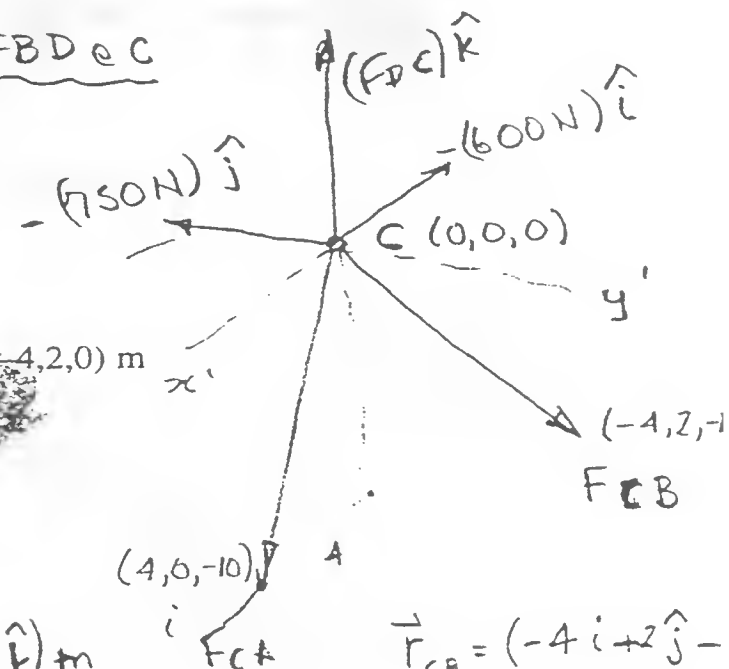 FBD @ C
(F_DC) k̂
-(600N) î
-(750N) ĵ
C (0,0,0)
y'
-4,2,0) m
x'
(-4,2,-1
F_CB
(4,0,-10)
A
i
k̂) m
F_CA
r⃗_CB = (-4 i +2 ĵ -